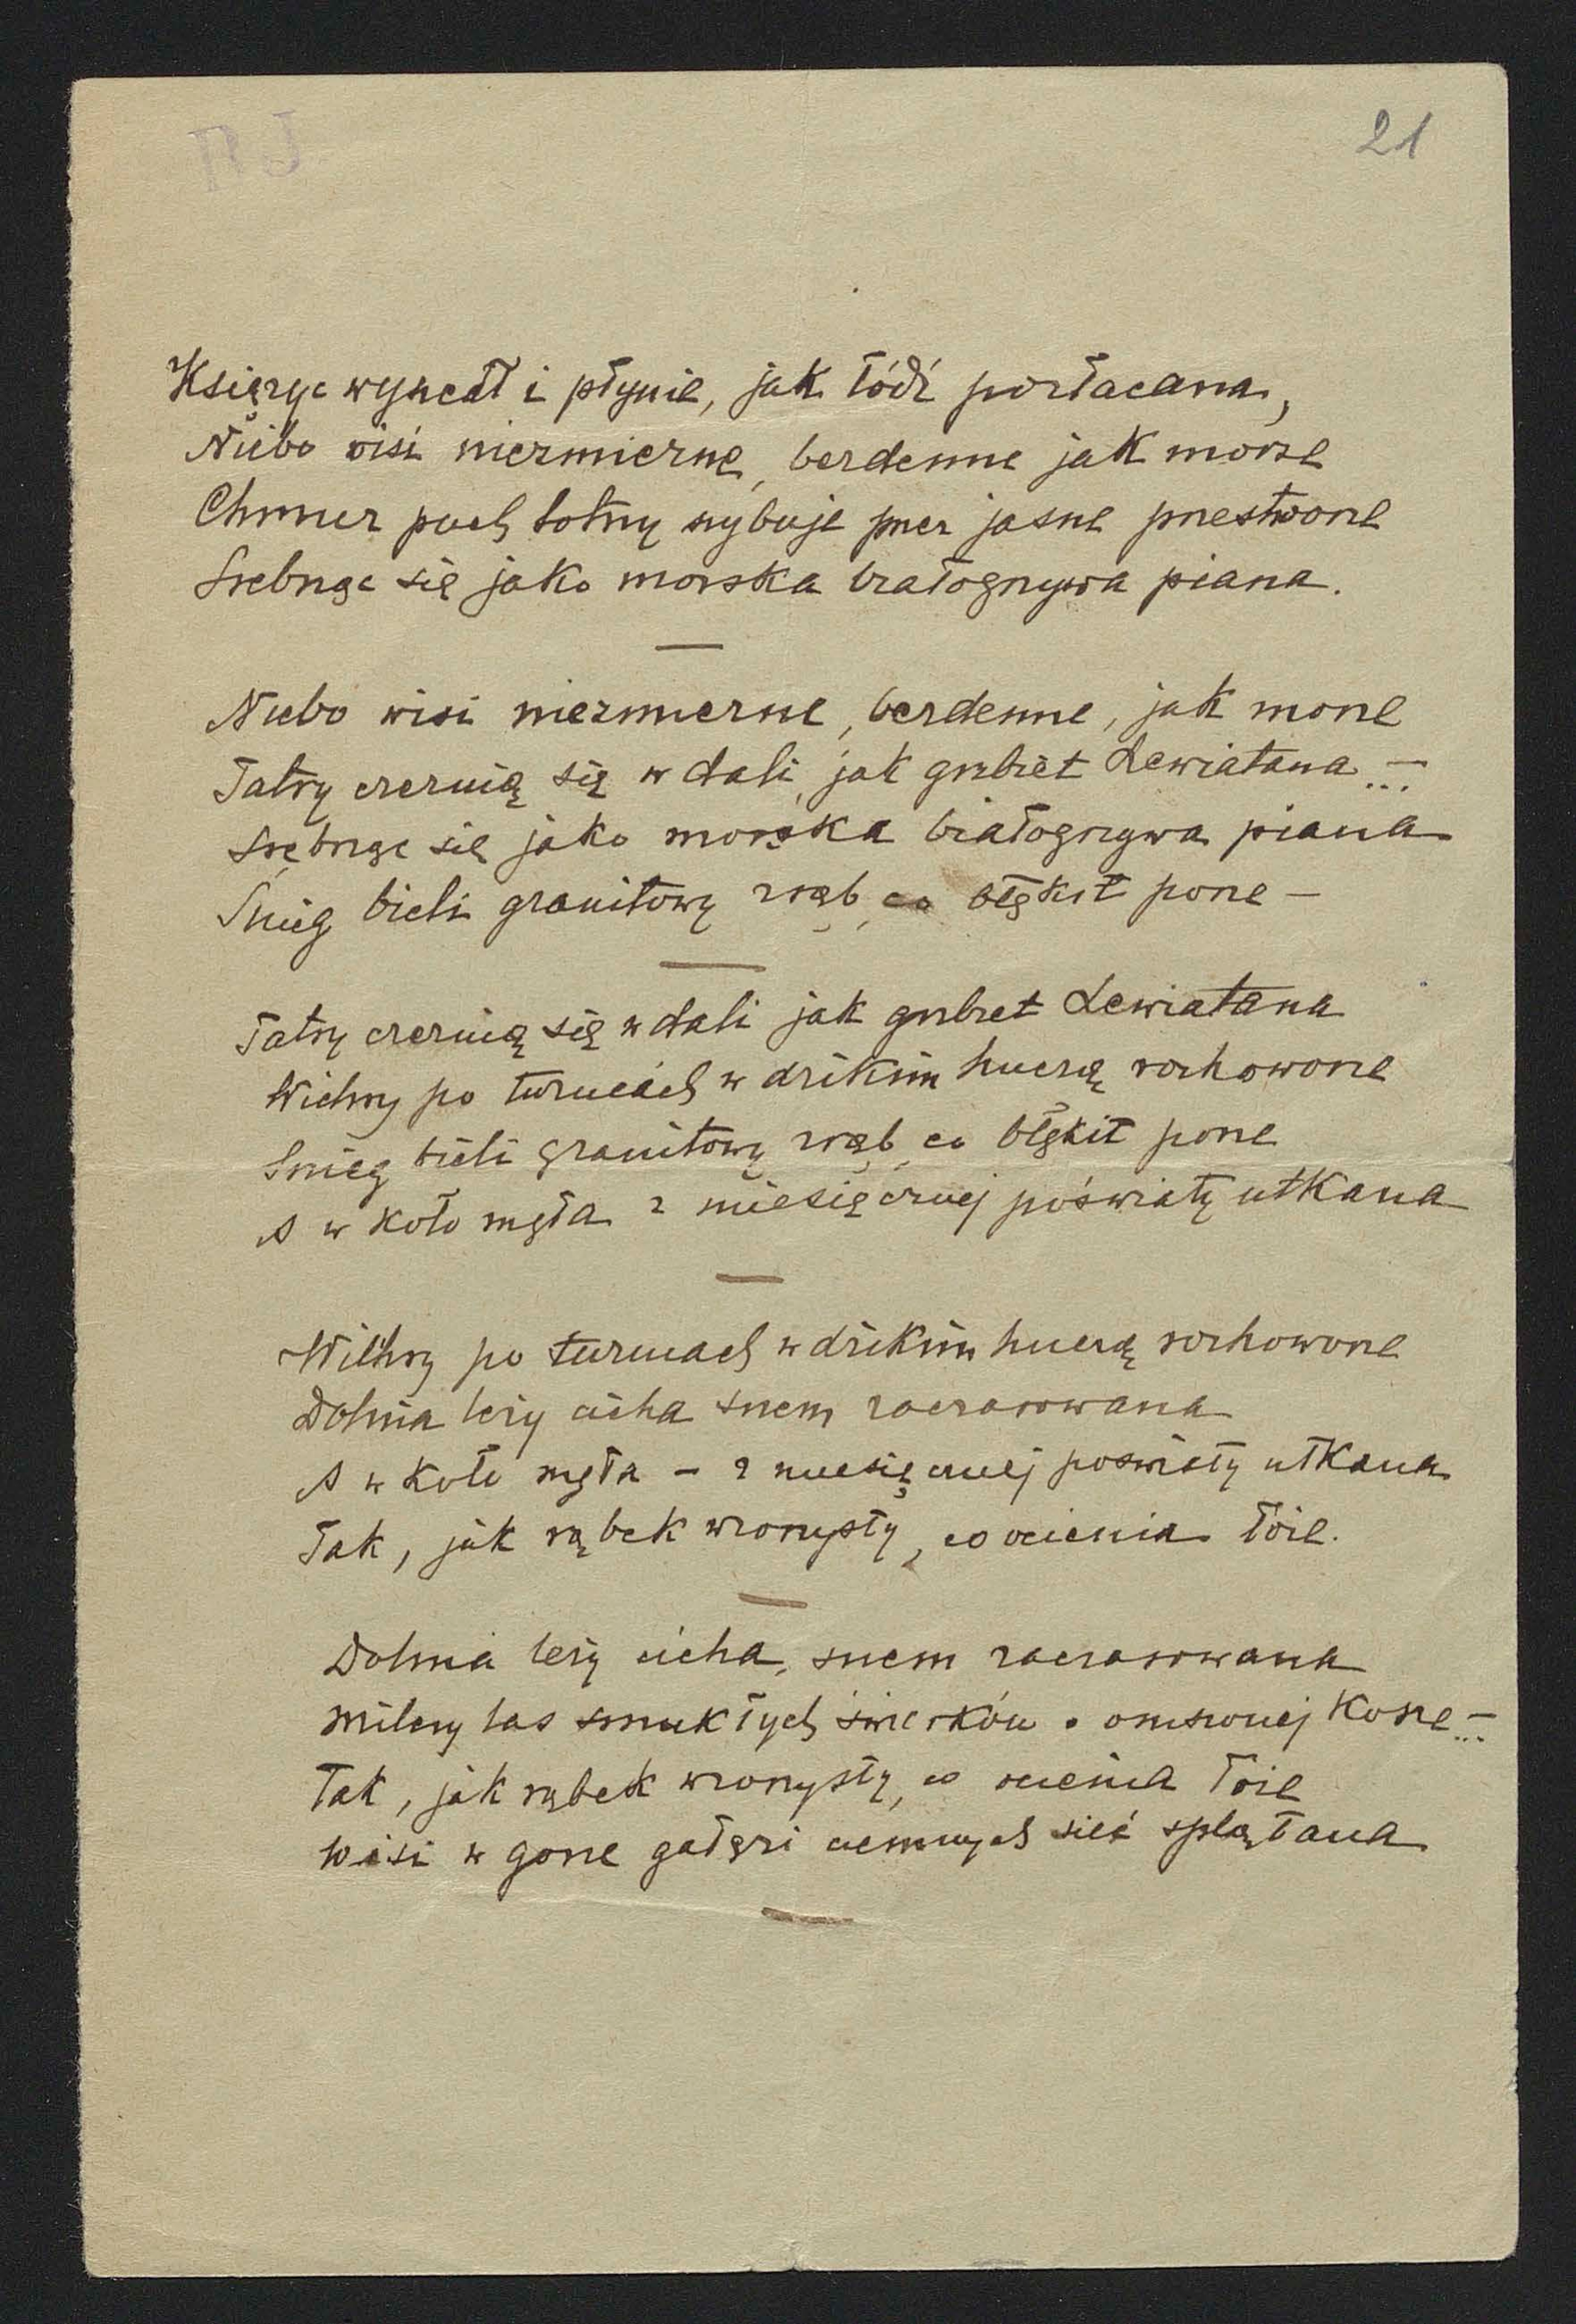 21
Księżyc wyszedł i płynie, jak łódź pozłacana,
Niebo wisi niezmierne, bezdenne jak morze
Chmur puch lotny szybuje przez jasne przestworze
Srebrząc się jako morska białogrzywa piana.
Niebo wisi niezmierne, bezdenne, jak morze
Tatry czernią się w dali, jak grzbiet Lewiatana...–
Srebrząc się jako morska białogrzywa piana
Śnieg bieli granitowy zrąb, co błękit porze –
Tatry czernią się w dali jak grzbiet Lewiatana
Wichry po turniach w dzikim huczą rozhoworze
Śnieg bieli granitowy zrąb, co błękit porze
A w koło mgła z miesięcznej poświaty utkana
Wichry po turniach w dzikim huczą rozhoworze
Dolina leży cicha snem zaczarowana
A w koło mgła – z miesięcznej poświaty utkana
Tak, jak rąbek wzorzysty, co ocienia łoże.
Dolina leży cicha, snem zaczarowana
Milczy las smukłych świerków o omszonej korze...–
Tak, jak rąbek wzorzysty, co ocienia łoże
Wisi w górze gałęzi ciemnych sieć splątana